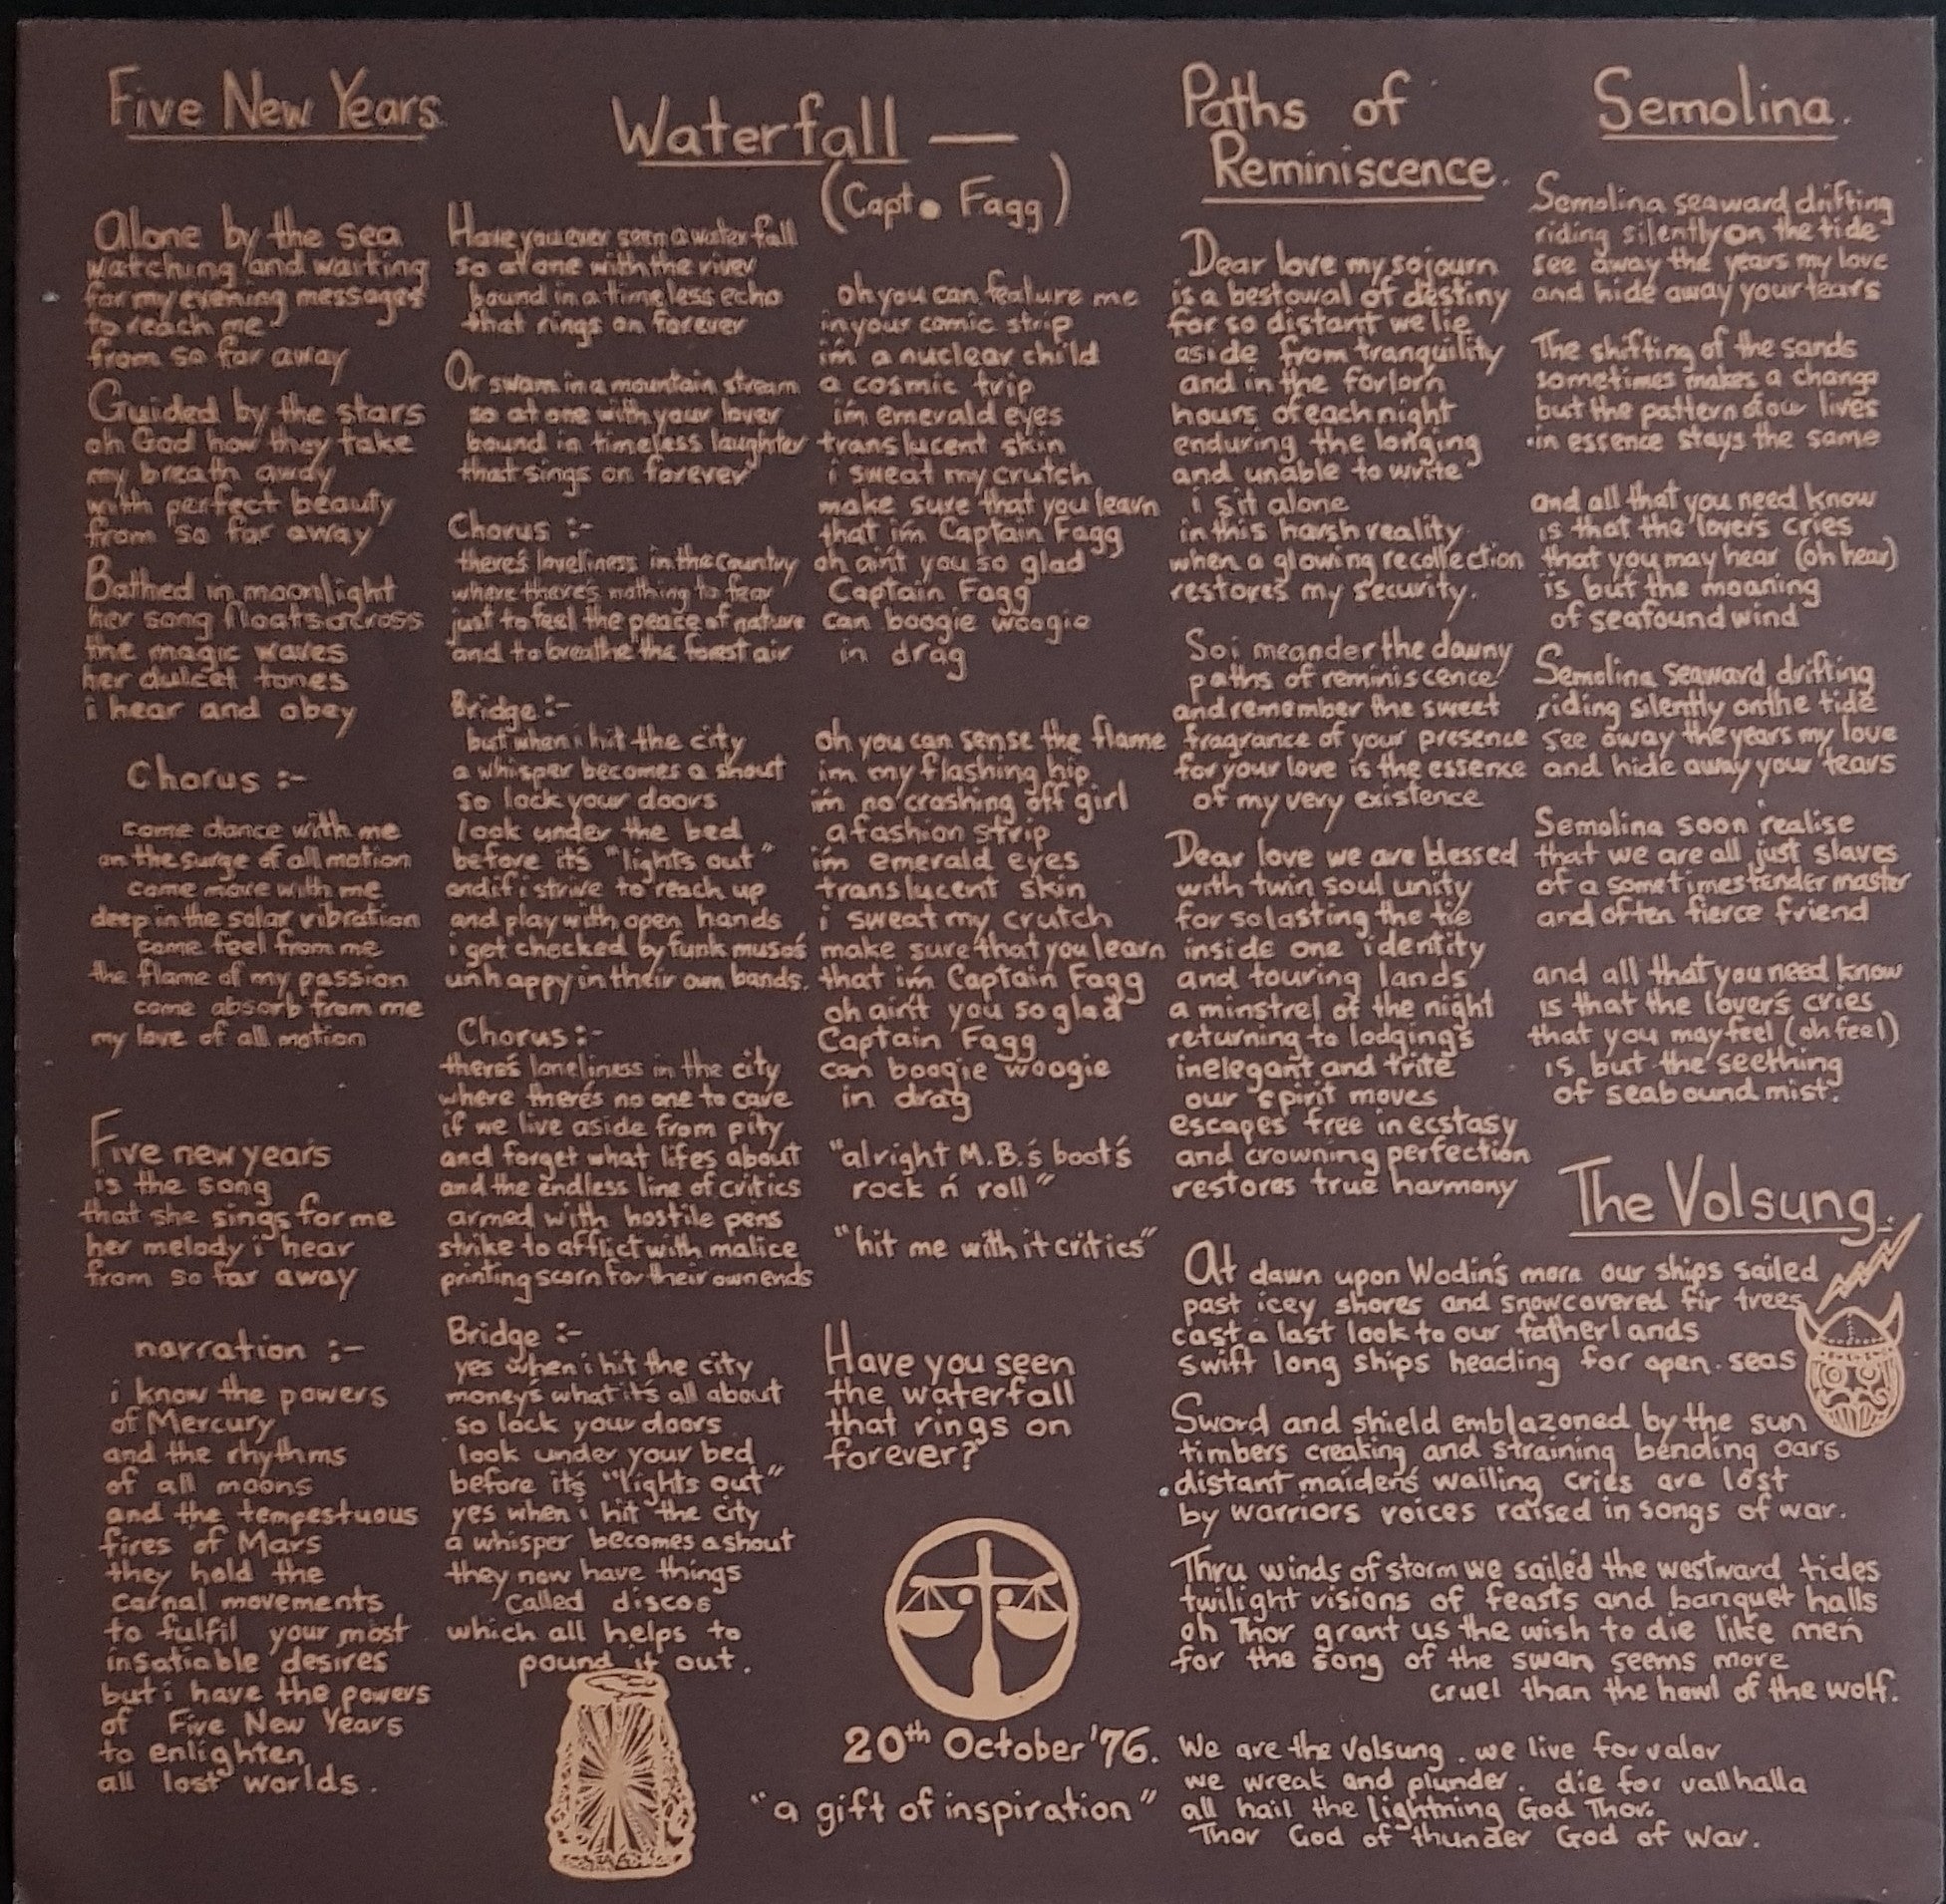 Five New Years.
Alone by the sea
watching and waiting
for my evening messages
to reach me
from so far away
Guided by the stars
oh God how they take
my breath away
with perfect beauty
from so far away
Bathed in moonlight
her song floats across
the magic waves
her dulcet tones
i hear and obey
Chorus :-
come dance with me
on the surge of all motion
come move with me
deep in the solar vibration
come feel from me
the flame of my passion
come absorb from me
my love of all motion
Five new years
is the song
that she sings for me
her melody i hear
from so far away
narration :-
i know the powers
of Mercury
and the rhythms
of all moons
and the tempestuous
fires of Mars
they hold the
carnal movements
to fulfil your most
insatiable desires
but i have the powers
of Five New Years
to enlighten
all lost worlds.
Waterfall —
(Capt. Fagg)
Have you ever seen a waterfall
so at one with the river
bound in a timeless echo
that rings on forever
Or swam in a mountain stream
so at one with your lover
bound in timeless laughter
that sings on forever
Chorus :-
there's loveliness in the country
where there's nothing to fear
just to feel the peace of nature
and to breathe the forest air
Bridge :-
but when i hit the city
a whisper becomes a shout
so lock your doors
look under the bed
before it's "lights out"
and if i strive to reach up
and play with open hands
i get checked by funk muso's
unhappy in their own bands.
Chorus :-
there's loneliness in the city
where there's no one to care
if we live aside from pity
and forget what lifes about
and the endless line of critics
armed with hostile pens
strike to afflict with malice
printing scorn for their own ends
Bridge :-
yes when i hit the city
money's what it's all about
so lock your doors
look under your bed
before it's "lights out"
yes when i hit the city
a whisper becomes a shout
they now have things
called discos
which all helps to
pound it out.
oh you can feature me
in your comic strip
i'm a nuclear child
a cosmic trip
i'm emerald eyes
translucent skin
i sweat my crutch
make sure that you learn
that i'm Captain Fagg
oh ain't you so glad
Captain Fagg
can boogie woogie
in drag
oh you can sense the flame
im my flashing hip
i'm no crashing off girl
a fashion strip
i'm emerald eyes
translucent skin
i sweat my crutch
make sure that you learn
that i'm Captain Fagg
oh ain't you so glad
Captain Fagg
can boogie woogie
in drag
"alright M.B.'s boot's
rock n' roll"
"hit me with it critics"
Have you seen
the waterfall
that rings on
forever?
20th October '76.
"a gift of inspiration"
Paths of
Reminiscence.
Dear love my sojourn
is a bestowal of destiny
for so distant we lie
aside from tranquility
and in the forlorn
hours of each night
enduring the longing
and unable to write
i sit alone
in this harsh reality
when a glowing recollection
restores my security.
So i meander the downy
paths of reminiscence
and remember the sweet
fragrance of your presence
for your love is the essence
of my very existence
Dear love we are blessed
with twin soul unity
for so lasting the tie
inside one identity
and touring lands
a minstrel of the night
returning to lodgings
inelegant and trite
our spirit moves
escapes free in ecstasy
and crowning perfection
restores true harmony
Semolina.
Semolina seaward drifting
riding silently on the tide
see away the years my love
and hide away your tears
The shifting of the sands
sometimes makes a change
but the pattern of our lives
in essence stays the same
and all that you need know
is that the lover's cries
that you may hear (oh hear)
is but the moaning
of seafound wind
Semolina seaward drifting
riding silently on the tide
see away the years my love
and hide away your tears
Semolina soon realise
that we are all just slaves
of a sometimes tender master
and often fierce friend
and all that you need know
is that the lover's cries
that you may feel (oh feel)
is but the seething
of seabound mist.
The Volsung.
At dawn upon Wodin's morn our ships sailed
past icey shores and snowcovered fir trees
cast a last look to our fatherlands
swift long ships heading for open seas
Sword and shield emblazoned by the sun
timbers creaking and straining bending oars
distant maiden's wailing cries are lost
by warriors voices raised in songs of war.
Thru winds of storm we sailed the westward tides
twilight visions of feasts and banquet halls
oh Thor grant us the wish to die like men
for the song of the swan seems more
cruel than the howl of the wolf.
We are the Volsung. we live for valor
we wreak and plunder. die for vallhalla
all hail the lightning God Thor.
Thor God of thunder God of war.